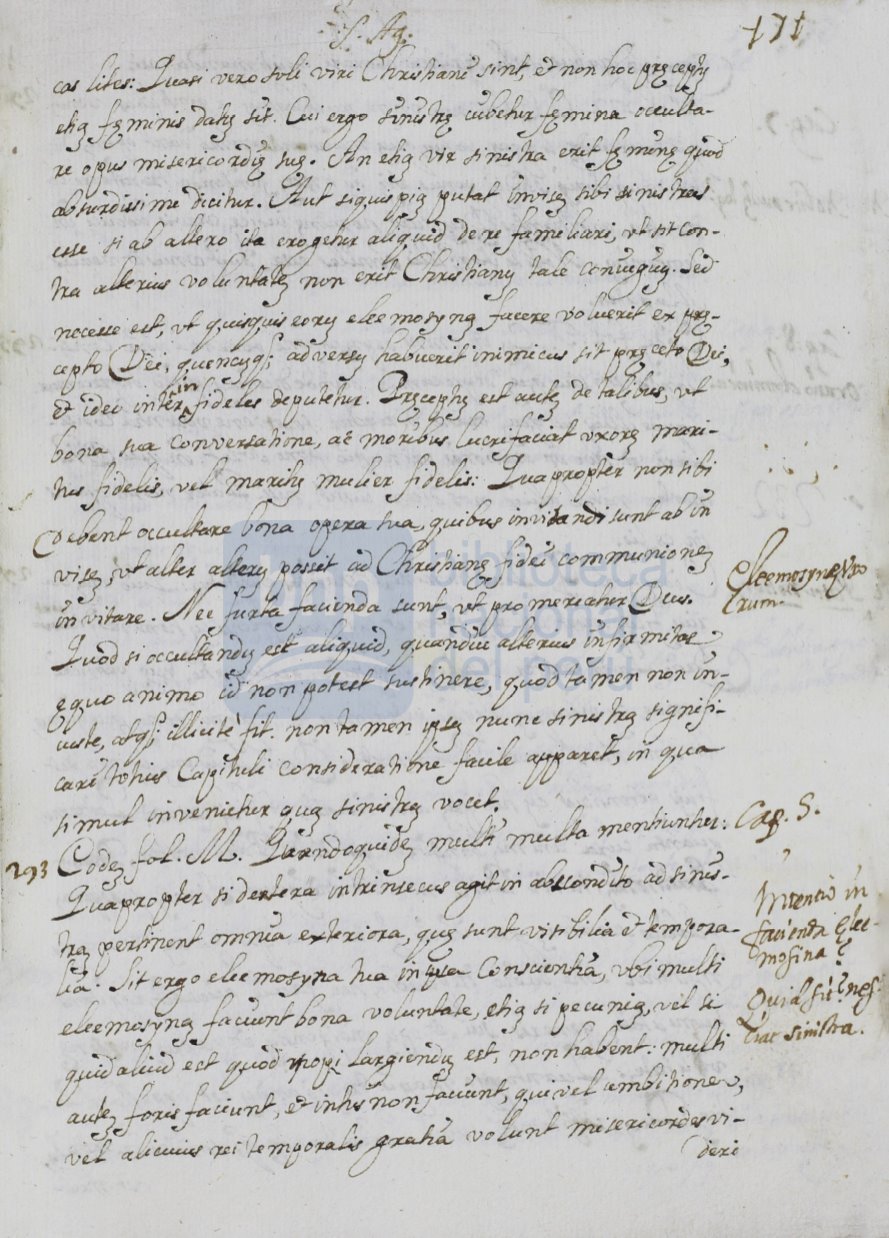 S. Ag.
171
cas lites: Quasi vero soli viri Christiani sint, et non hoc pręceptȝ
etiȝ fęminis datȝ sit. Cui ergo sinistrę iubetur fęmina occulta-
re opus misericordię suę. An etiȝ vir sinistra erit fęminę quod
absurdissime dicitur. Aut siquis piȝ putat invisȝ sibi sinistras
esse si ab altero ita erogetur aliquid de re familiari, vt sit con-
tra alterius voluntatȝ non erit Christianȝ tale coniugiȝ. Sed
necesse est, vt quisquis eorȝ eleemosynȝ facere voluerit ex prę-
cepto Dei, quencȝqȝ adversȝ habuerit inimicus sit pręceto Dei,
et ideo inter in fideles deputetur. Pręceptȝ est autȝ de talibus, vt
bona sua conversatione, ac moribus lucrifaciat vxorȝ mari-
tus fidelis, vel maritȝ mulier fidelis: Quapropter non sibi
debent occultare bona opera sua, quibus invitandi sunt ab in
visȝ, vt alter alterȝ possit ad Christianę fidei communionȝ
invitare. Nec furta facienda sunt, vt promereatur Deus.
Eleemosynę vxo
rum.
Quod si occultandȝ est aliquid, quandiu alterius infirmitas
ęquo animo id non potest sustinere, quod tamen non in-
iuste, atqȝ illicitè fit. non tamen ipsȝ nunc sinistrȝ signifi-
cari totius Capituli consideratione facile apparet, in qua
simul invenietur quȝ sinistrȝ vocet.
293 Codȝ fol. M. Quandoquidȝ multi multa mentiuntur: Cap. 5.
Quapropter si dextera intrinsecus agit in abscondito ad sinis-
trȝ pertinent omnia exteriora, quę sunt visibilia et tempora-
lia. Sit ergo eleemosyna tua in ipsa Conscientia, vbi multi
Intentio in
facienda Elee-
mosina?
eleemosynȝ faciunt bona voluntate, etiȝ si pecuniȝ, vel si
quid aliud est quod inopi largiendȝ est, non habent: multi
Quid sit? nes-
ciat sinistra.
autȝ foris faciunt, et intus non faciunt, qui vel ambitione,
vel alicuius rei temporalis gratia volunt misericordes vi-
deri
biblioteca
nacional
del perú